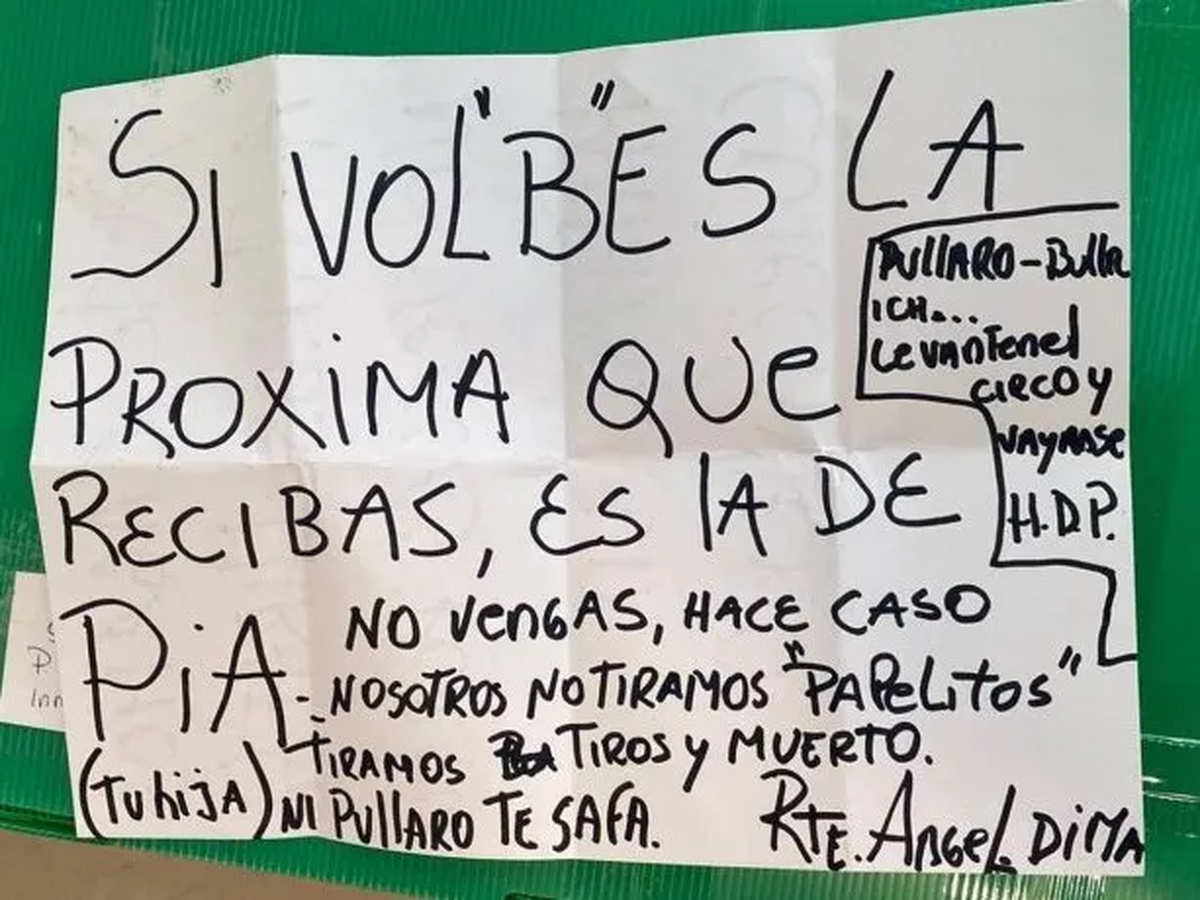 SI VOL"B"ES LA
PROXIMA QUE
RECIBAS, ES LA DE
PiA-
(Tu hiJA)
PULLARO-Bulla
ICH...
LevanTenel
CIRCO Y
VAYANSE
H.D.P.
NO VenGAS, HACE CASO
NOSOTROS NO TIRAMOS "PAPeLitos"
TIRAMOS TIROS y MUERTO.
NI PULLARO TE SAFA.
RTE. ANGeL DiMA